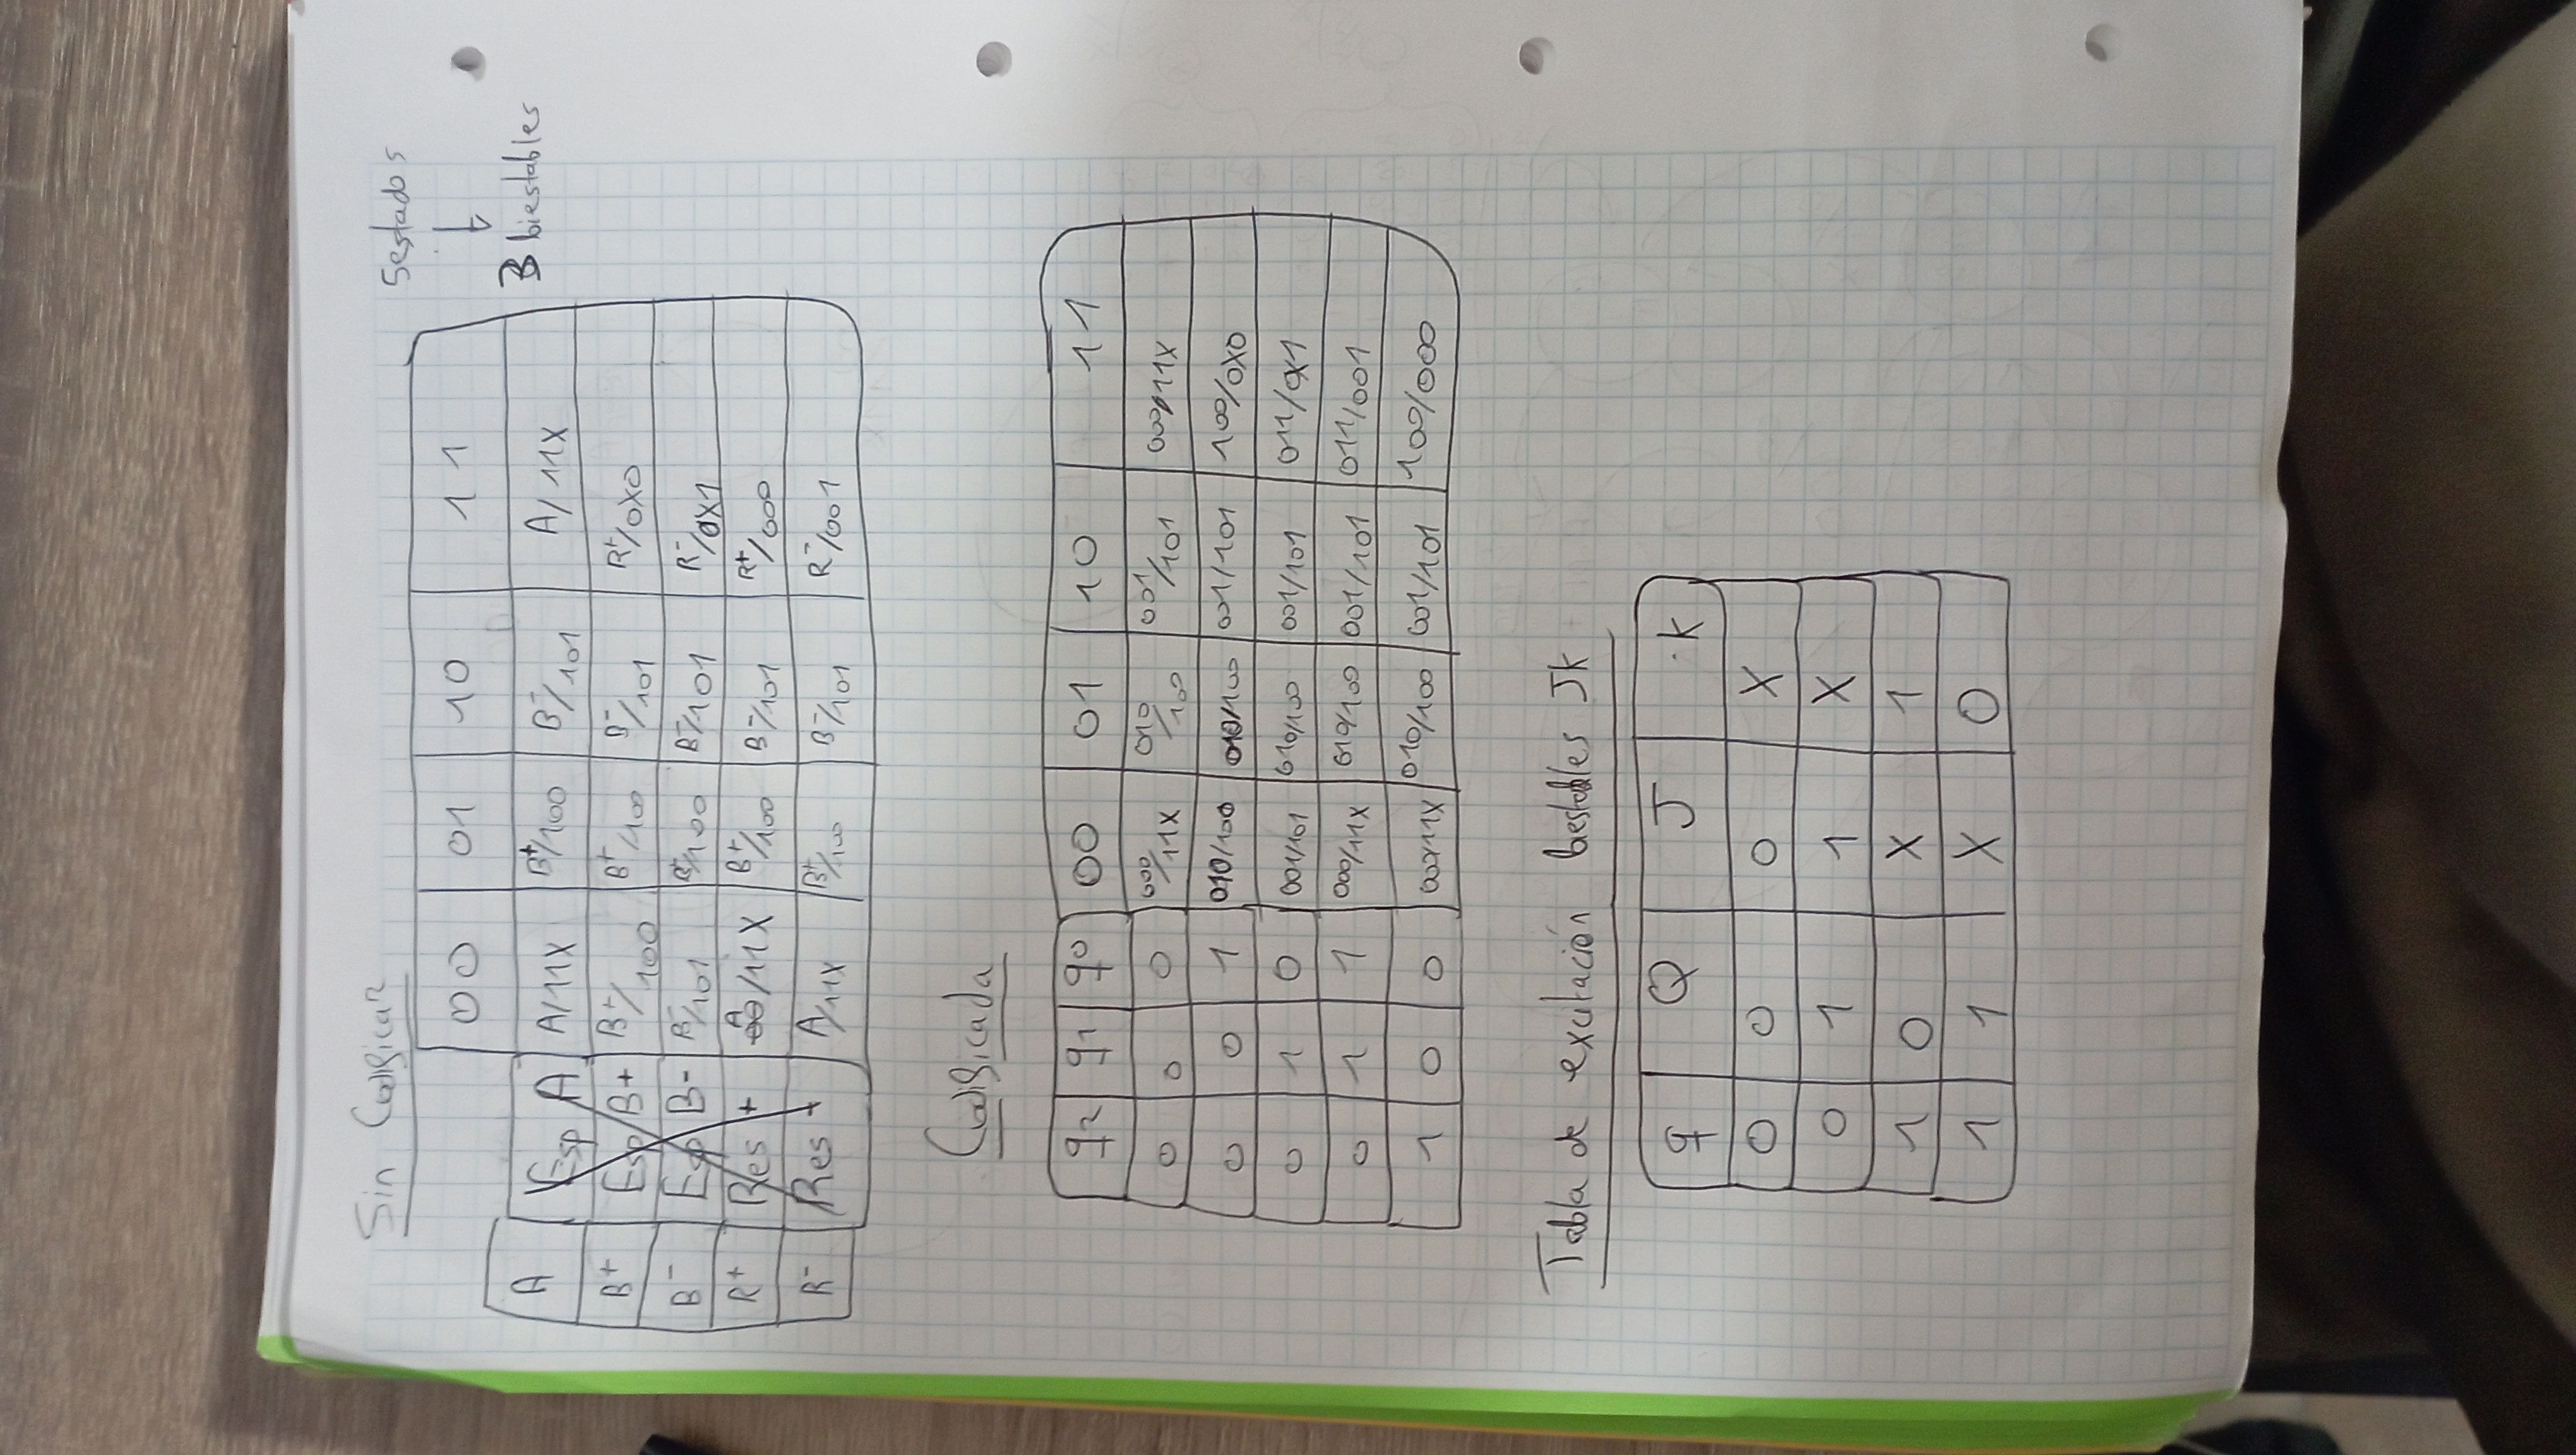 Sin Codificar
5 estados
↓
3 biestables
00 01 10 11
A Esp A A/11X B+/100 B-/101 A/11X
B+ Esp B+ B+/100 B+/100 B-/101 R+/0X0
B- Esp B- B-/101 B+/100 B-/101 R-/0X1
R+ Res + A/11X B+/100 B-/101 R+/000
R- Res - A/11X B+/100 B-/101 R-/001
Codificada
q2 q1 q0 00 01 10 11
0 0 0 000/11X 010/100 001/101 000/11X
0 0 1 010/100 010/100 001/101 100/0X0
0 1 0 001/101 010/100 001/101 011/0X1
0 1 1 000/11X 010/100 001/101 011/001
1 0 0 000/11X 010/100 001/101 100/000
Tabla de excitación biestables Jk
q Q J k
0 0 0 X
0 1 1 X
1 0 X 1
1 1 X 0